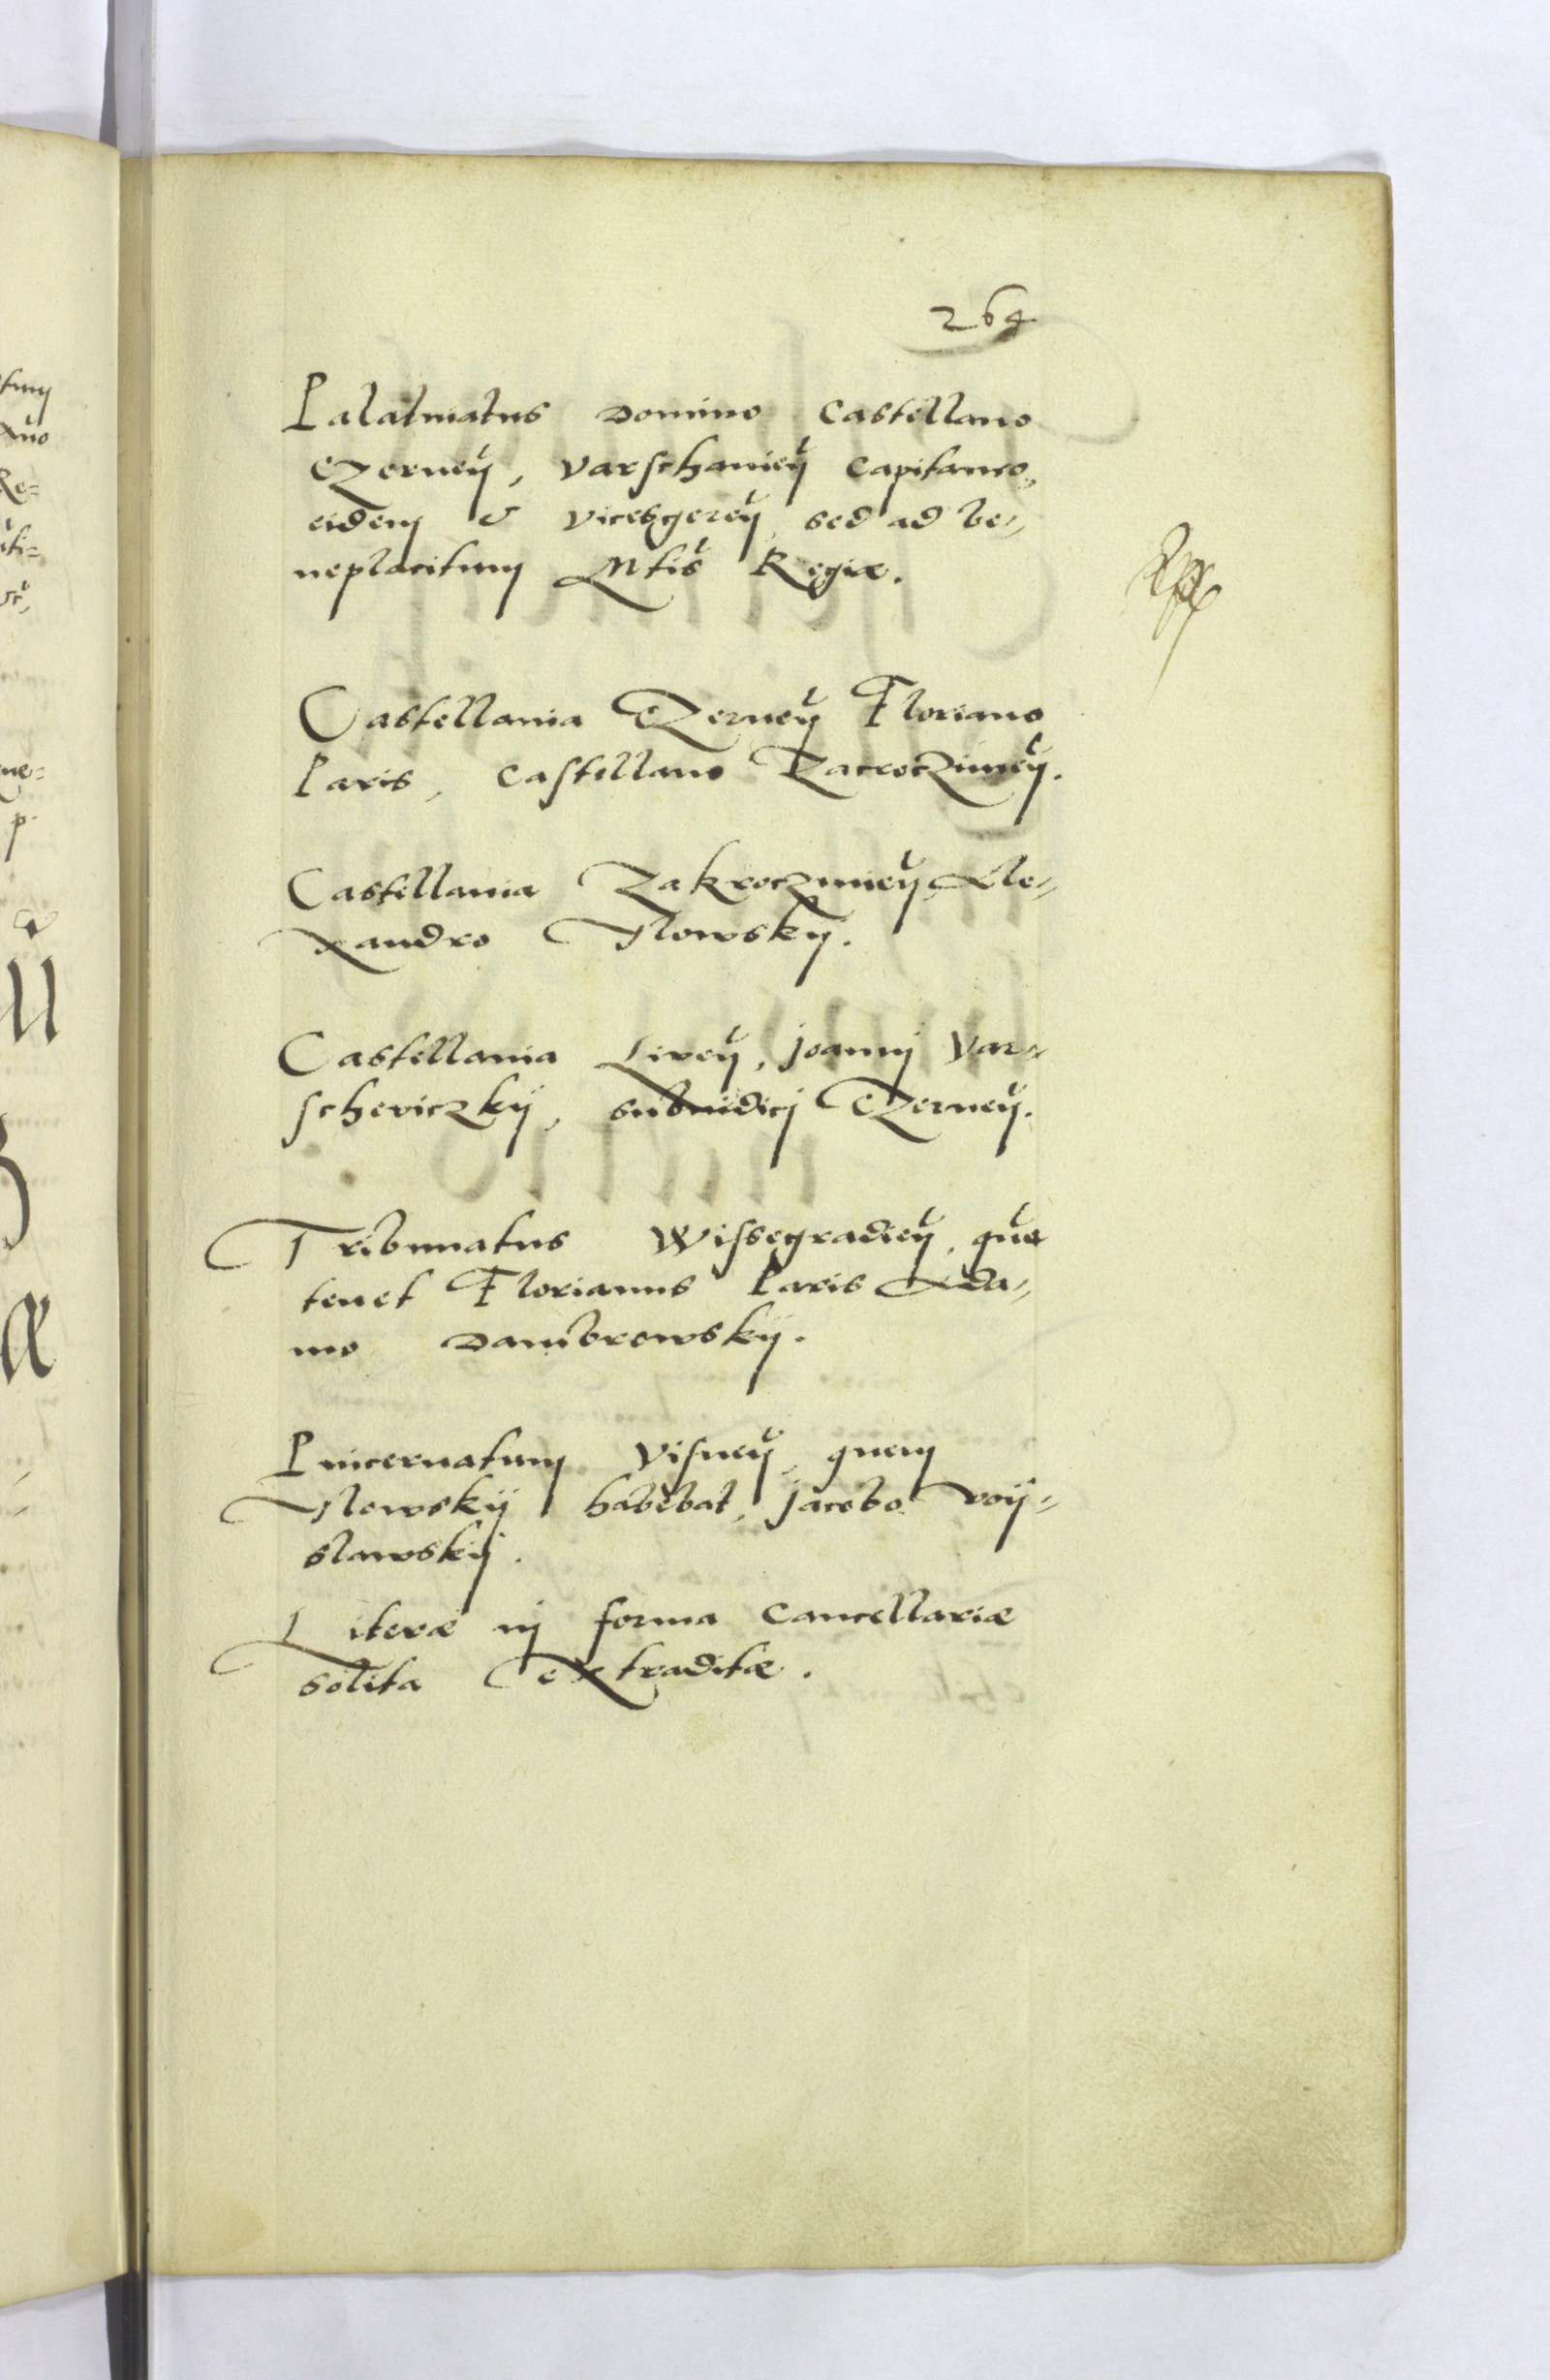 264
Palatinatus Domino Castellano
Czerneῦ, Varschavieῦ Capitaneo,
eidem & vicesgereῦ, sed ad be„
neplacitum Mtis Regiæ.
Castellania Czerneῦ Floriano
Paris, Castellano ZacrocZimeῦ.
Castellania Zakroczimieῦ Ale„
xandro Ilowskij.
Castellania Liveῦ, Joannj Var„
scheviczkij, subiudicj Czerneῦ.
Tribunatus Wissegradieῦ, quē
tenet Florianus Paris Ada„
mo Dambrowskij.
Pincernatum Visneῦ, quem
Ilowskij habebat, Jacobo Voij„
slawskij.
Literæ in forma Cancellariæ
solita extraditæ.